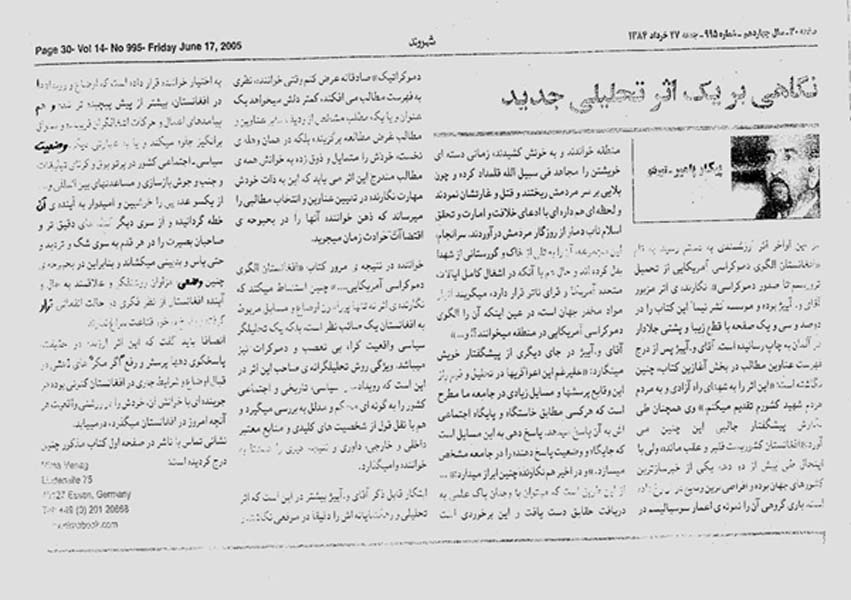 Page 30- Vol 14- No 995- Friday June 17, 2005
شهروند
صفحه ۳۰ـ سال چهاردهم ـ شماره ۹۹۵ـ جمعه ۲۷ خرداد ۱۳۸۴
نگاهی بر یک اثر تحلیلی جدید
در این اواخر اثر ارزشمندی به دستم رسید به نام
«افغانستان الگوی دموکراسی آمریکایی از تحمیل
تروریسم تا صدور دموکراسی» نگارنده ی اثر مزبور
آقای و. آبیژ بوده و موسسه نشر نیما این کتاب را در
دوصد و سی و یک صفحه با قطع زیبا و پشتی جلادار
در آلمان به چاپ رسانیده است. آقای و. آبیژ پس از درج
فهرست عناوین مطالب در بخش آغازین کتاب، چنین
نگاشته است: «این اثر را به شهدای راه آزادی و به مردم
هردم شهید کشورم تقدیم میکنم.» وی همچنان طی
نگارش پیشگفتار جالبی این چنین می
آورد: «افغانستان کشوریست فقیر و عقب مانده، ولی با
اینحال طی بیش از ده دهه یکی از خبرسازترین
کشورهای جهان بوده و
است. باری گروهی آن را نمونه ی اعمار سوسیالیسم در
منطقه خواندند و به خونش کشیدند، زمانی دسته ای
خویشتن را مجاهد فی سبیل الله قلمداد کرده و چون
بلایی بر سر مردمش ریختند و قتل و غارتشان نمودند
و لحظه ای هم داره ای با ادعای خلافت و امارت و تحقق
اسلام ناب دمار از روزگار مردمش درآوردند. سرانجام،
این مجموعه، آن را به تلی از خاک و گورستانی از شهدا
بدل کرده اند و حال هم با آنکه در اشغال کامل ایالات
متحده آمریکا و قرای ناتو قرار دارد، میگویند انبار
مواد مخدر جهان است، در عین اینکه آن را الگوی
دموکراسی آمریکایی در منطقه میخوانند؟! و...»
آقای و. آبیژ در جای دیگری از پیشگفتار خویش
مینگارد: «علیرغم این اعواگریها در تحلیل و
این وقایع پرسشها و مسایل زیادی در جامعه ما مطرح
است که هرکسی مطابق خاستگاه و پایگاه اجتماعی
اش به آن پاسخ میدهد. پاسخ دهی به این مسایل است
که جایگاه و وضعیت پاسخ دهنده را در جامعه مشخص
میسازد.» و در اخیر هم نگارنده چنین ابراز میدارد: «...
از این طریق است که میتوان با وجدان پاک علمی به
دریافت حقایق دست یافت و این برخوردی است
دموکراتیک» صادقانه عرض کنم وقتی خواننده، نظری
به فهرست مطالب می افکند، کمتر دلش میخواهد یک
عنوان و یا یک مطلب مشخص از ردیف سایر عناوین و
مطالب غرض مطالعه برگزیند، بلکه در همان وهله ی
نخست، خودش را متمایل و ذوق زده به خوانش همه ی
مطالب مندرج این اثر می یابد که این به ذات خودش
مهارت نگارنده در تعیین عناوین و انتخاب مطالبی را
میرساند که ذهن خواننده آنها را در بحبوحه ی
اقتضاآت حوادث زمان میجوید.
خواننده در نتیجه ی مرور کتاب «افغانستان الگوی
دموکراسی آمریکایی....» چنین استنباط میکند که
نگارنده ی اثر نه تنها پیرامون اوضاع و مسایل مربوط
به افغانستان یک صائب نظر است، بلکه یک تحلیلگر
سیاسی واقعیت گرا، بی تعصب و دموکرات نیز
میباشد. ویژگی روش تحلیلگرانه ی صاحب این اثر در
این است که رویدادهای سیاسی، تاریخی و اجتماعی
کشور را به گونه ای محکم و مدلل به بررسی میگیرد و
هم با نقل قول از شخصیت های کلیدی و منابع معتبر
داخلی و خارجی، داوری و نتیجه گیری را
خواننده وامیگذارد.
ابتکار قابل ذکر آقای و. آبیژ بیشتر در این است که اثر
تحلیلی و رهنمایانه اش را دقیقا در موقعی نگاشته و
به اختیار خواننده قرار داده است که اوضاع و رویدادها
در افغانستان، بیشتر از پیش پیچیده تر شده و هم
پیامدهای اعمال و حرکات اشغالگران فریبنده و سوال
برانگیز جلوه میکند و یا به عبارتی دیگر، وضعیت
سیاسی ـ اجتماعی کشور در پرتو بوق و کرنای تبلیغات
و جنب و جوش بازسازی و مساعدتهای بین المللی و...
از یکسو عده یی را خوشبین و امیدوار به آینده ی آن
خطه گردانیده و از سوی دیگر دقیق تر و
صاحبان بصیرت را در هر قدم به سوی شک و تردید و
حتی یاس و بدبینی میکشاند و بنابراین در بحبوحه ی
چنین وضعی میتوان روشنفکر و علاقمند به حال و
آینده افغانستان از نظر فکری در حالت انفعالی قرار
گرفته
انصافا باید گفت که این اثر ارزنده در حقیقت،
پاسخگوی دهها پرسش و رفع «اگر مگر» های ذهنی در
قبال اوضاع و شرایط جاری در افغانستان کنونی بوده هر
جوینده ای با خوانش آن، خودش را در روشنی واقعیت هر
آنچه امروز در افغانستان میگذرد، درمییابد.
نشانی تماس با ناشر در صفحه اول کتاب مذکور چنین
درج گردیده است:
Nima Verlag
Lindenalle 75
45127 Essen, Germany
Tel: +49 (0) 201 20868